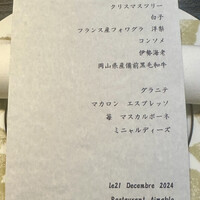 クリスマスツリー
白子
フランス産フォワグラ 洋梨
コンソメ
伊勢海老
岡山県産備前黒毛和牛
グラニテ
マカロン エスプレッソ
苺 マスカルポーネ
ミニャルディーズ
le21 Decembre 2024
Restaurant Aimable